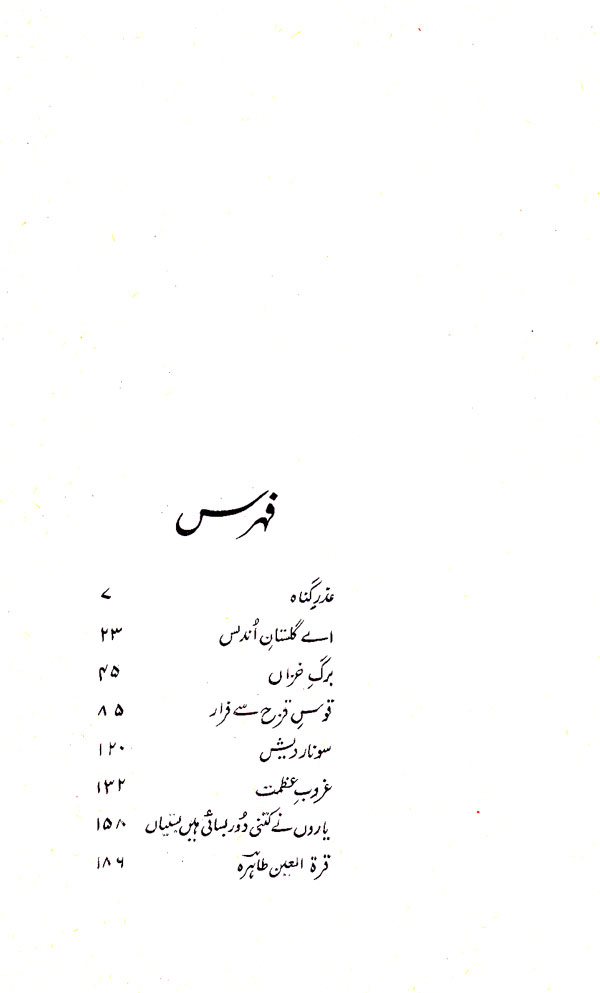 فہرس
عذرِ گناہ ۷
اے گلستانِ اُندلس ۲۳
برگِ خزاں ۴۵
قوسِ قزح سے فرار ۸۵
سونار دیش ۱۲۰
غروبِ عظمت ۱۳۲
یاروں نے کتنی دُور بسائی ہیں بستیاں ۱۵۸
قرۃ العین طاہرہ ۱۸۶